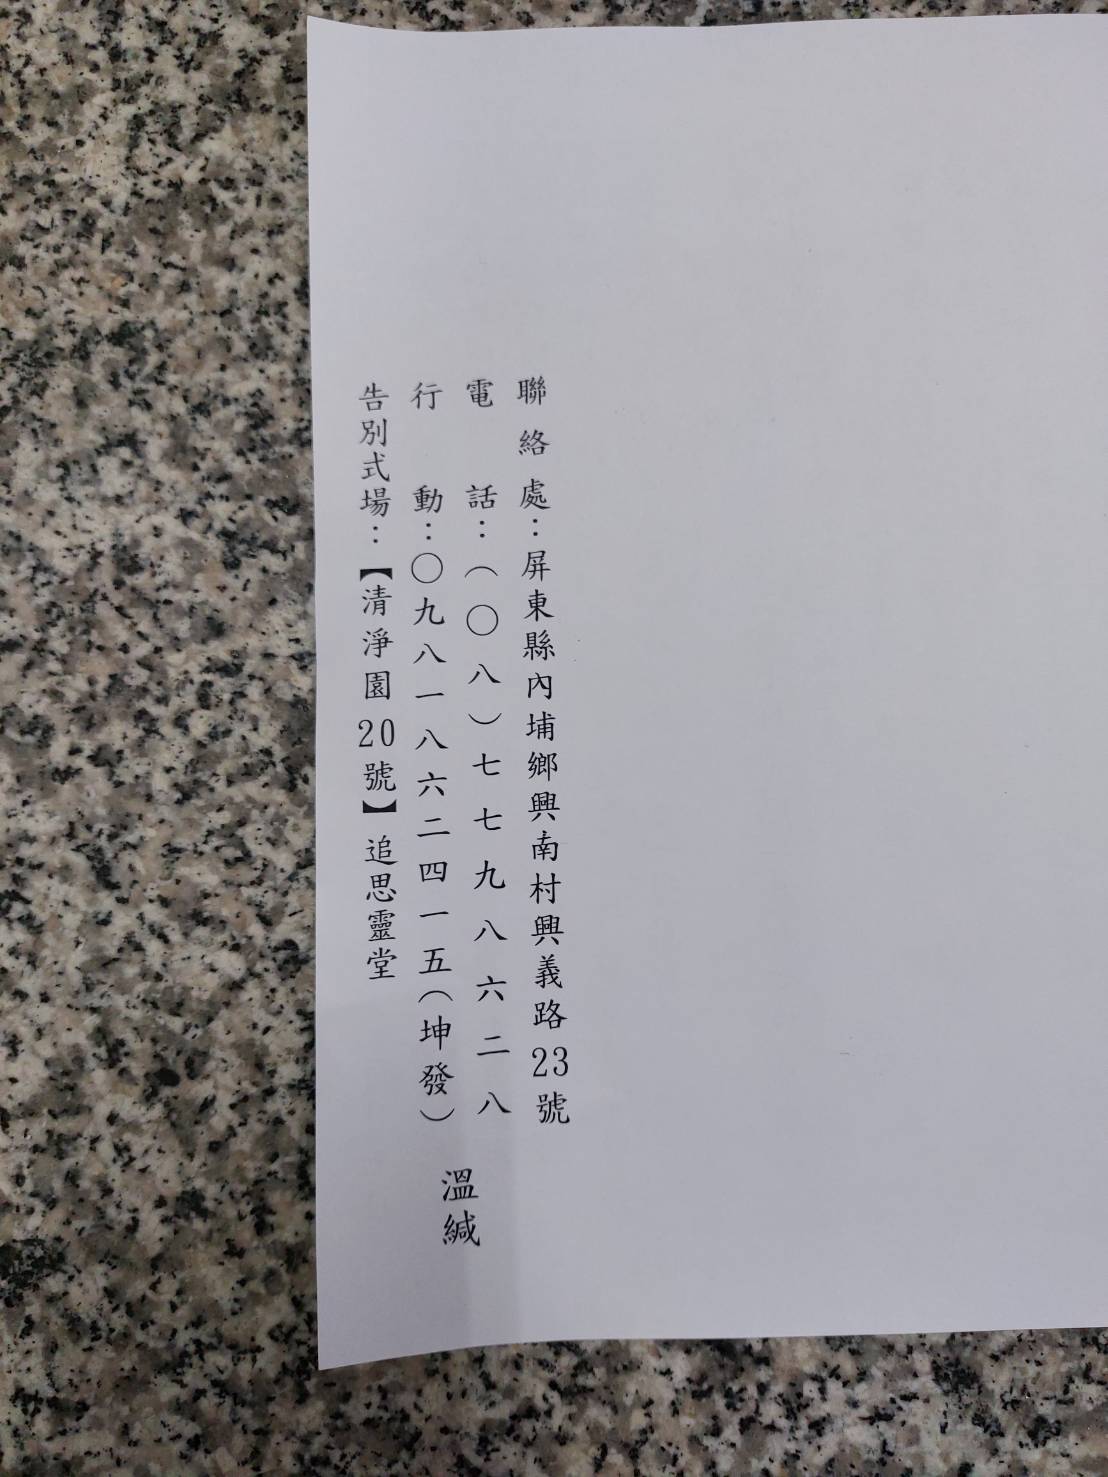 聯絡處：屏東縣內埔鄉興南村興義路23號
電話：（〇八）七七九八六二八
行動：〇九八一八六二四一五（坤發）
告別式場：【清淨園20號】追思靈堂
溫緘